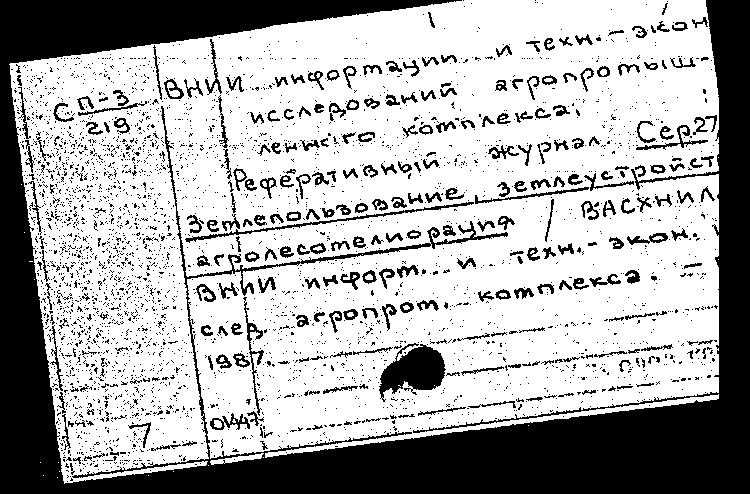 СП-3
219
ВНИИ информации и техн.-экон
исследований агропромыш-
ленного комплекса.
Реферативный журнал. Сер.27
Землепользование, землеустройст
агролесомелиорация / ВАСХНИЛ
ВНИИ информ. и техн.-экон. и
след агропром. комплекса. -
1987.
01447
7